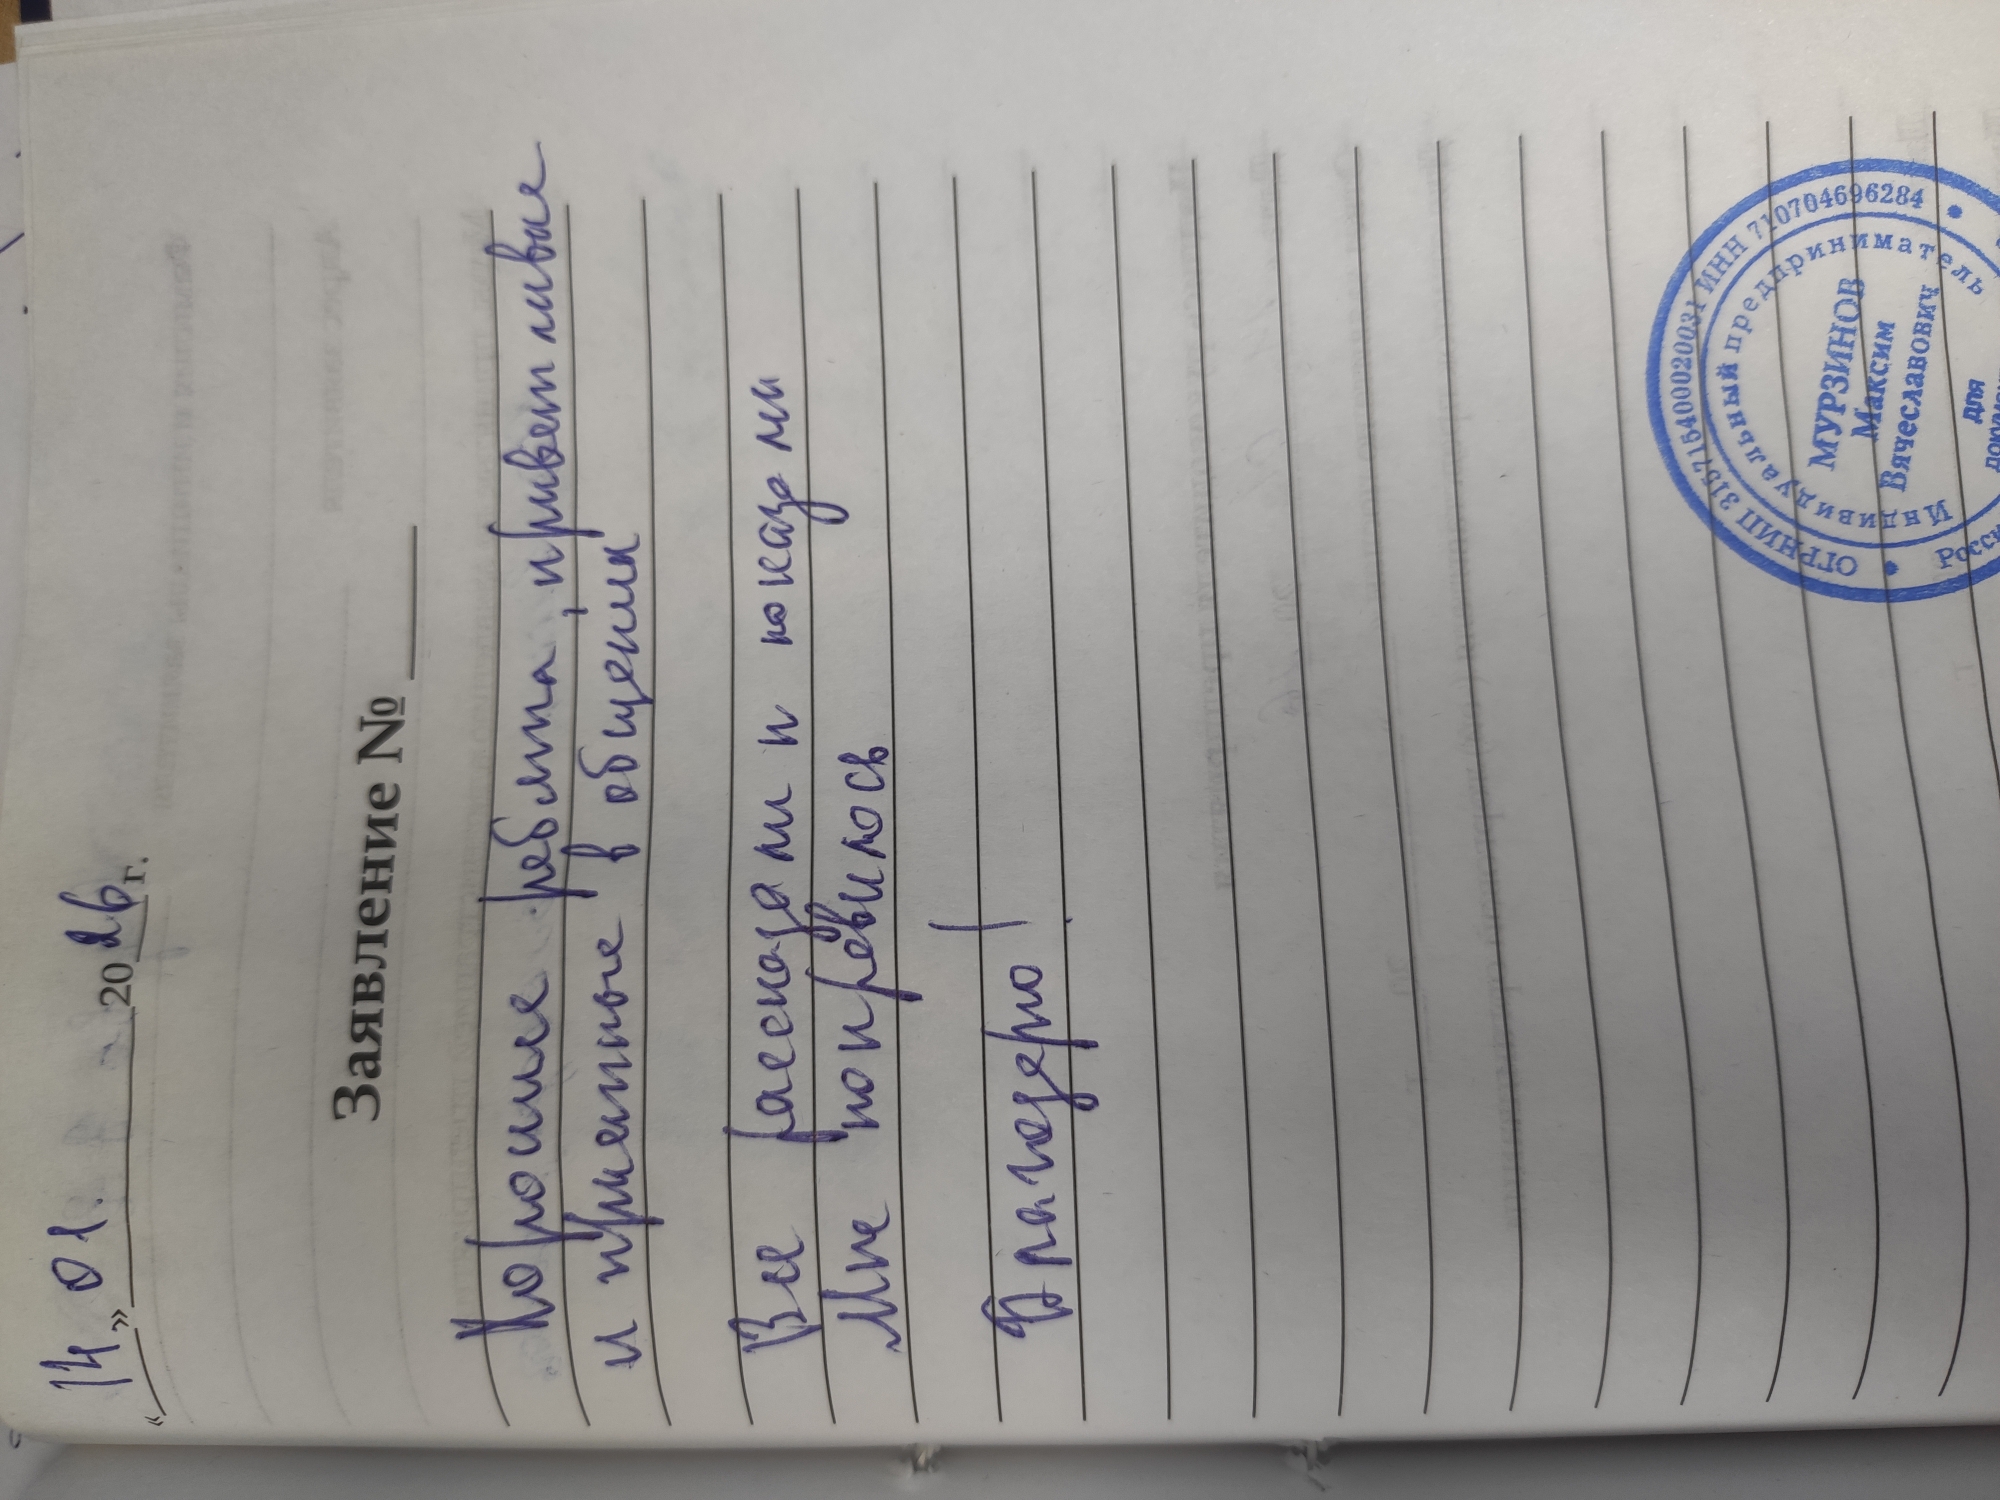 «14» 01. 2026 г.
Заявление № ____
Хорошие ребята, приветливые
и приятные в общении
Все рассказали и показали
Мне понравилось
Благодарю!
ОГРНИП 315715400020031 ИНН 710704696284
Индивидуальный предприниматель
МУРЗИНОВ
Максим
Вячеславович
для